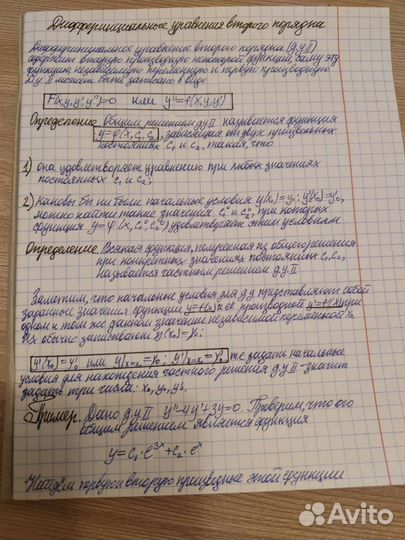 Дифференциальные уравнения второго порядка
Дифференциальное уравнение второго порядка (д.у II)
содержит вторую производную некоторой функции, саму эту
функцию, независимую переменную и первую производную.
Д.у II может быть записано в виде
F(x,y,y',y'')=0 или y''=f(x,y,y')
Определение. Общим решением д.у II называется функция
y=φ(x,c₁,c₂), зависящая от двух произвольных
постоянных c₁ и c₂, такая, что
1) она удовлетворяет уравнению при любых значениях
постоянных c₁ и c₂;
2) Каковы бы ни были начальные условия y(x₀)=y₀; y'(x₀)=y'₀,
можно найти такие значения c₁⁰ и c₂⁰, при которых
функция y=φ(x,c₁⁰,c₂⁰) удовлетворяет этим условиям.
Определение. Всякая функция, полученная из общего решения
при конкретных значениях постоянных c₁,c₂,
называется частным решением д.у II
Заметим, что начальные условия для д.у представляют собой
заданные значения функции y=f(x) и её производной y'=f'(x) при
одном и том же данном значении независимой переменной x₀
Их обычно записывают y(x₀)=y₀;
y'(x₀)=y'₀ или y|x=x₀=y₀; y'|x=x₀=y'₀ задать начальные
условия для нахождения частного решения д.у II - значит
задать три числа: x₀, y₀, y'₀
Пример. Дано д.у II y''-4y'+3y=0. Проверим, что его
общим решением является функция
y=c₁·e³ˣ+c₂·eˣ
Найдём первую и вторую производные этой функции
Avito